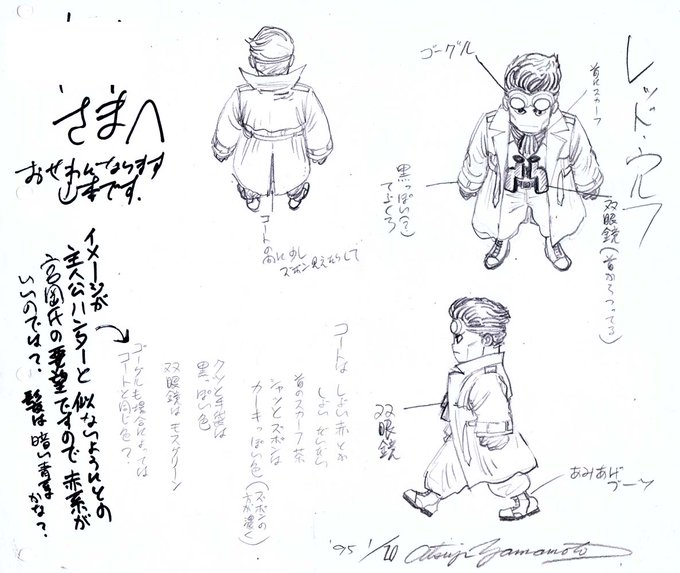 レッド・ウルフ
ゴーグル
首にスカーフ
黒っぽい(?)
てぶくろ
双眼鏡(首からつってる)
コートの
ズボン見えたらして
さまへ
おせわになってます
山本です。
イメージが
主人公ハンターと似ないようにとの
宮岡氏の要望ですので赤系が
いいのでは?髪は暗い青系かな?
ゴーグルも場合によっては
コートと同じ色?
コートは しぶい赤とか
しぶいだいだい
首のスカーフ 茶
シャツとズボンは
カーキっぽい色(ズボンの方が濃く)
クツと手袋は
黒っぽい色
双眼鏡は モスグリーン
双眼鏡
あみあげ
ブーツ
'95 1/20 Atsuji Yamamoto